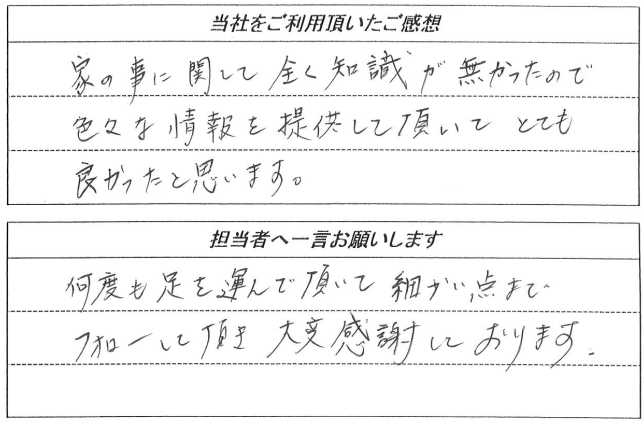 当社をご利用頂いたご感想
家の事に関して全く知識が無かったので
色々な情報を提供して頂いてとても
良かったと思います。
担当者へ一言お願いします
何度も足を運んで頂いて細かい点まで
フォローして頂き大変感謝しております.